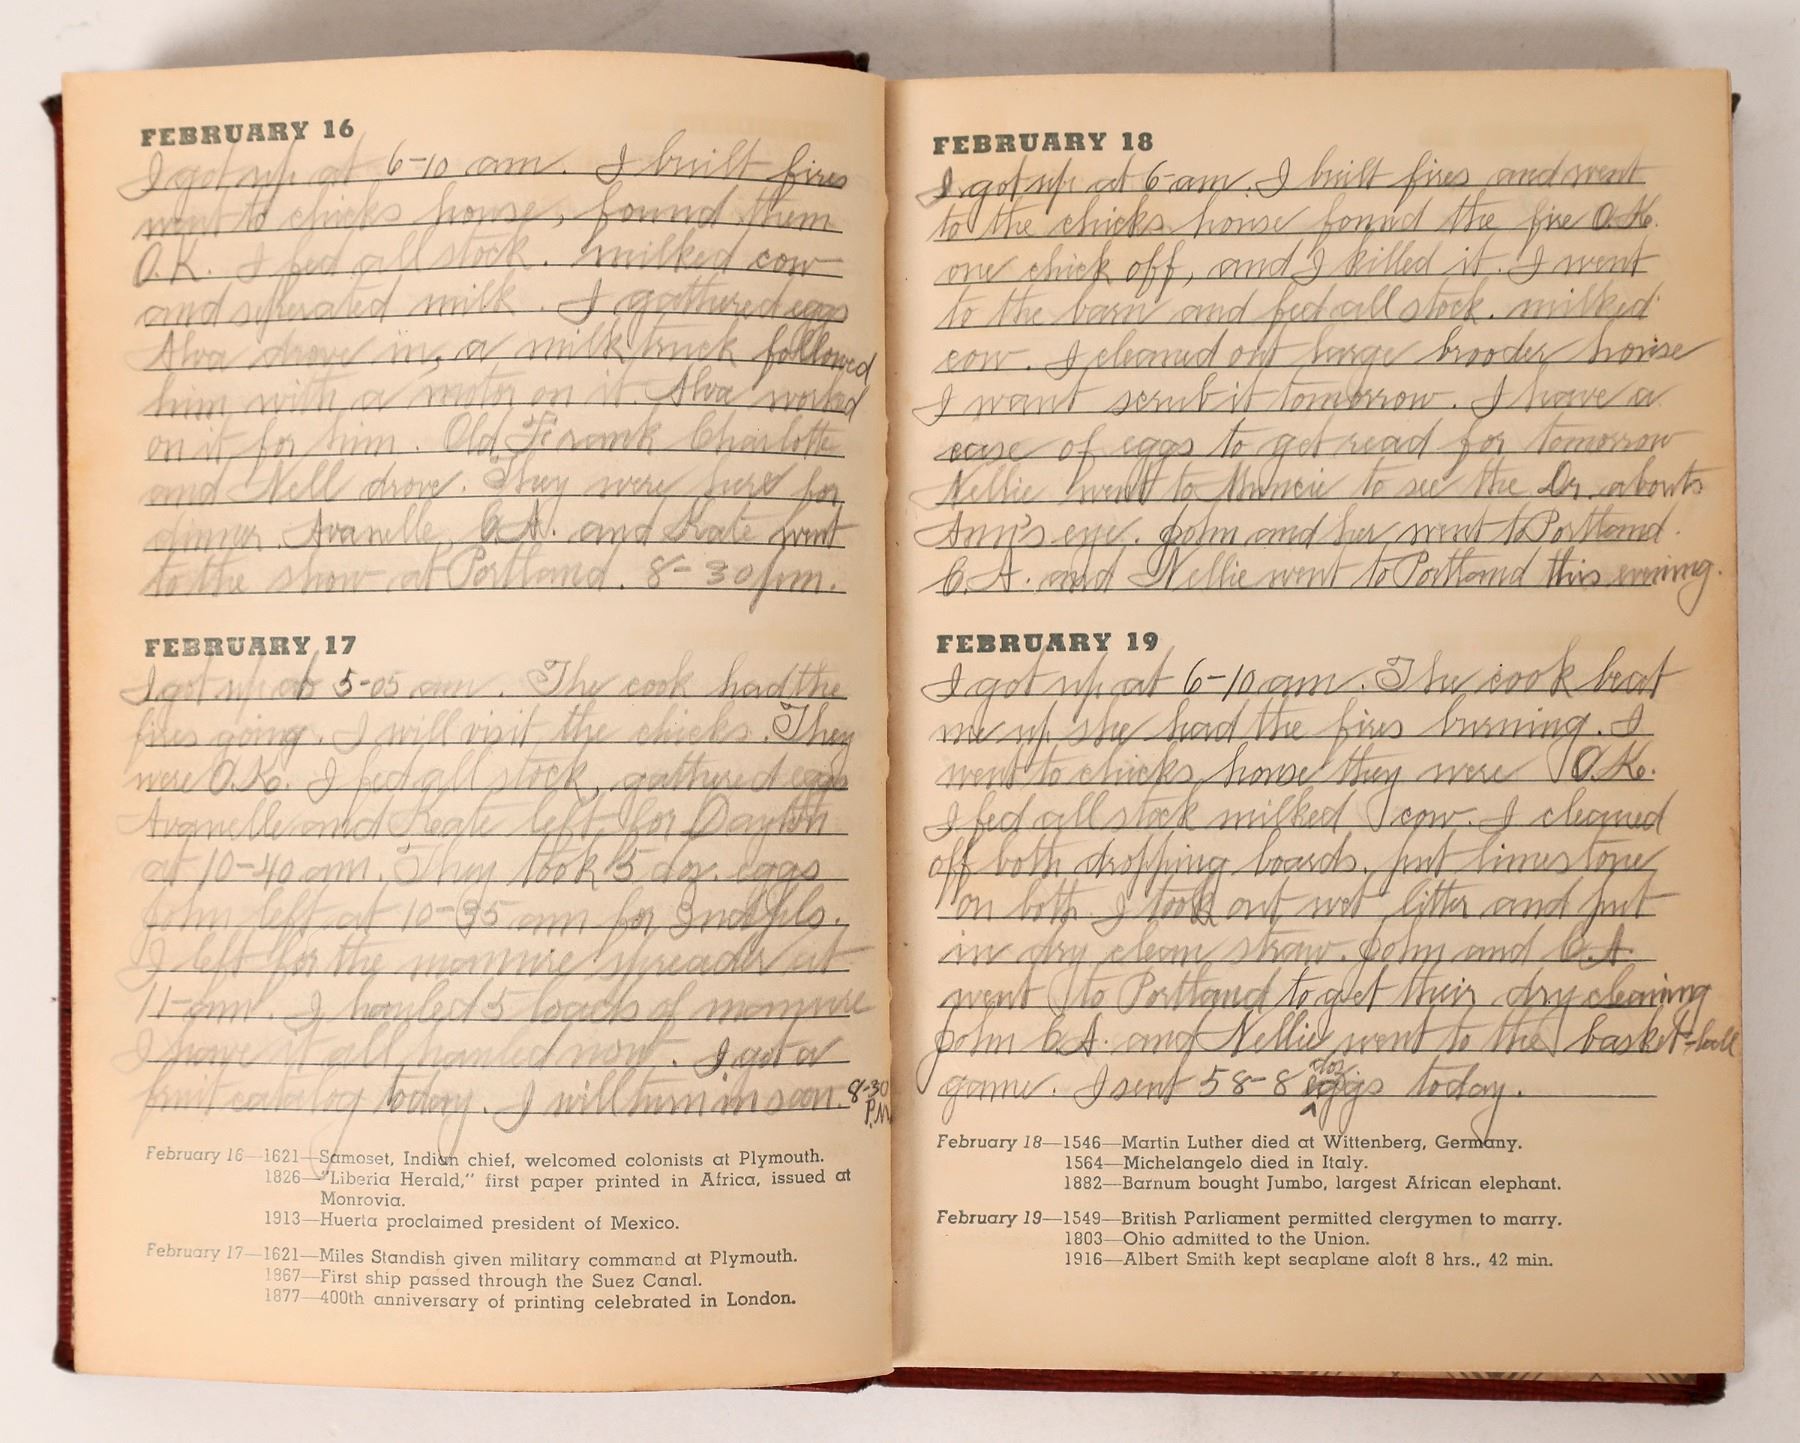 FEBRUARY 16
I got up at 6-10 am. I built fires
went to chicks house, found them
O.K. I fed all stock. milked cow
and seperated milk. I gathered eggs
Alva drove in, a milk truck followed
him with a motor on it. Alva worked
on it for him. Old Frank Charlotte
and Nell drove. They were here for
dinner. Avanelle, C.A. and Kate went
to the show at Portland. 8-30 pm.
FEBRUARY 17
I got up at 5-05 am. The cook had the
fires going. I will visit the chicks. They
were O.K. I fed all stock, gathered eggs
Avanelle and Keate left for Dayton
at 10-40 am. They took 5 doz. eggs
John left at 10-35 am for Indpls.
I left for the manure spreader at
11-am. I hauled 5 loads of manure
I have it all hauled now. I got a
fruit catalog today. I will turn in soon. 8-30
P.M.
February 16—1621—Samoset, Indian chief, welcomed colonists at Plymouth.
1826—"Liberia Herald," first paper printed in Africa, issued at
Monrovia.
1913—Huerta proclaimed president of Mexico.
February 17—1621—Miles Standish given military command at Plymouth.
1867—First ship passed through the Suez Canal.
1877—400th anniversary of printing celebrated in London.
FEBRUARY 18
I got up at 6 am. I built fires and went
to the chicks house found the fire O.K.
one chick off, and I killed it. I went
to the barn and fed all stock. milked
cow. I cleaned out large brooder house
I want scrub it tomorrow. I have a
case of eggs to get read for tomorrow
Nellie went to Muncie to see the Dr. abouts
Ann's eye. John and her went to Portland.
C.A. and Nellie went to Portland this evining.
FEBRUARY 19
I got up at 6-10 am. The cook beat
me up she had the fires burning. I
went to chicks house they were O.K.
I fed all stock milked cow. I cleaned
off both dropping boards. put limestone
on both. I took out wet litter and put
in dry clean straw. John and C.A.
went to Portland to get their dry cleaning
John C.A. and Nellie went to the basket-ball
game. I sent 58-8 doz eggs today.
February 18—1546—Martin Luther died at Wittenberg, Germany.
1564—Michelangelo died in Italy.
1882—Barnum bought Jumbo, largest African elephant.
February 19—1549—British Parliament permitted clergymen to marry.
1803—Ohio admitted to the Union.
1916—Albert Smith kept seaplane aloft 8 hrs., 42 min.